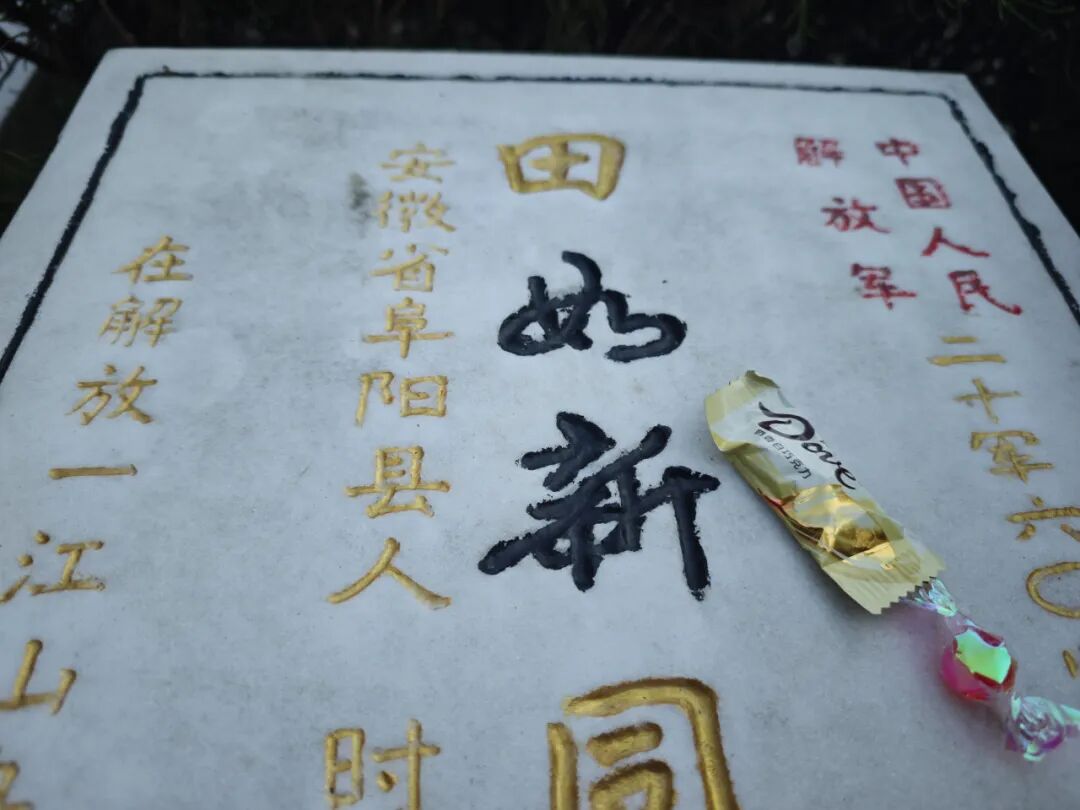 中国人民
解放军
二十军六〇
田如新同
安徽省阜阳县人时
在解放一江山
Dove
奶香白巧克力